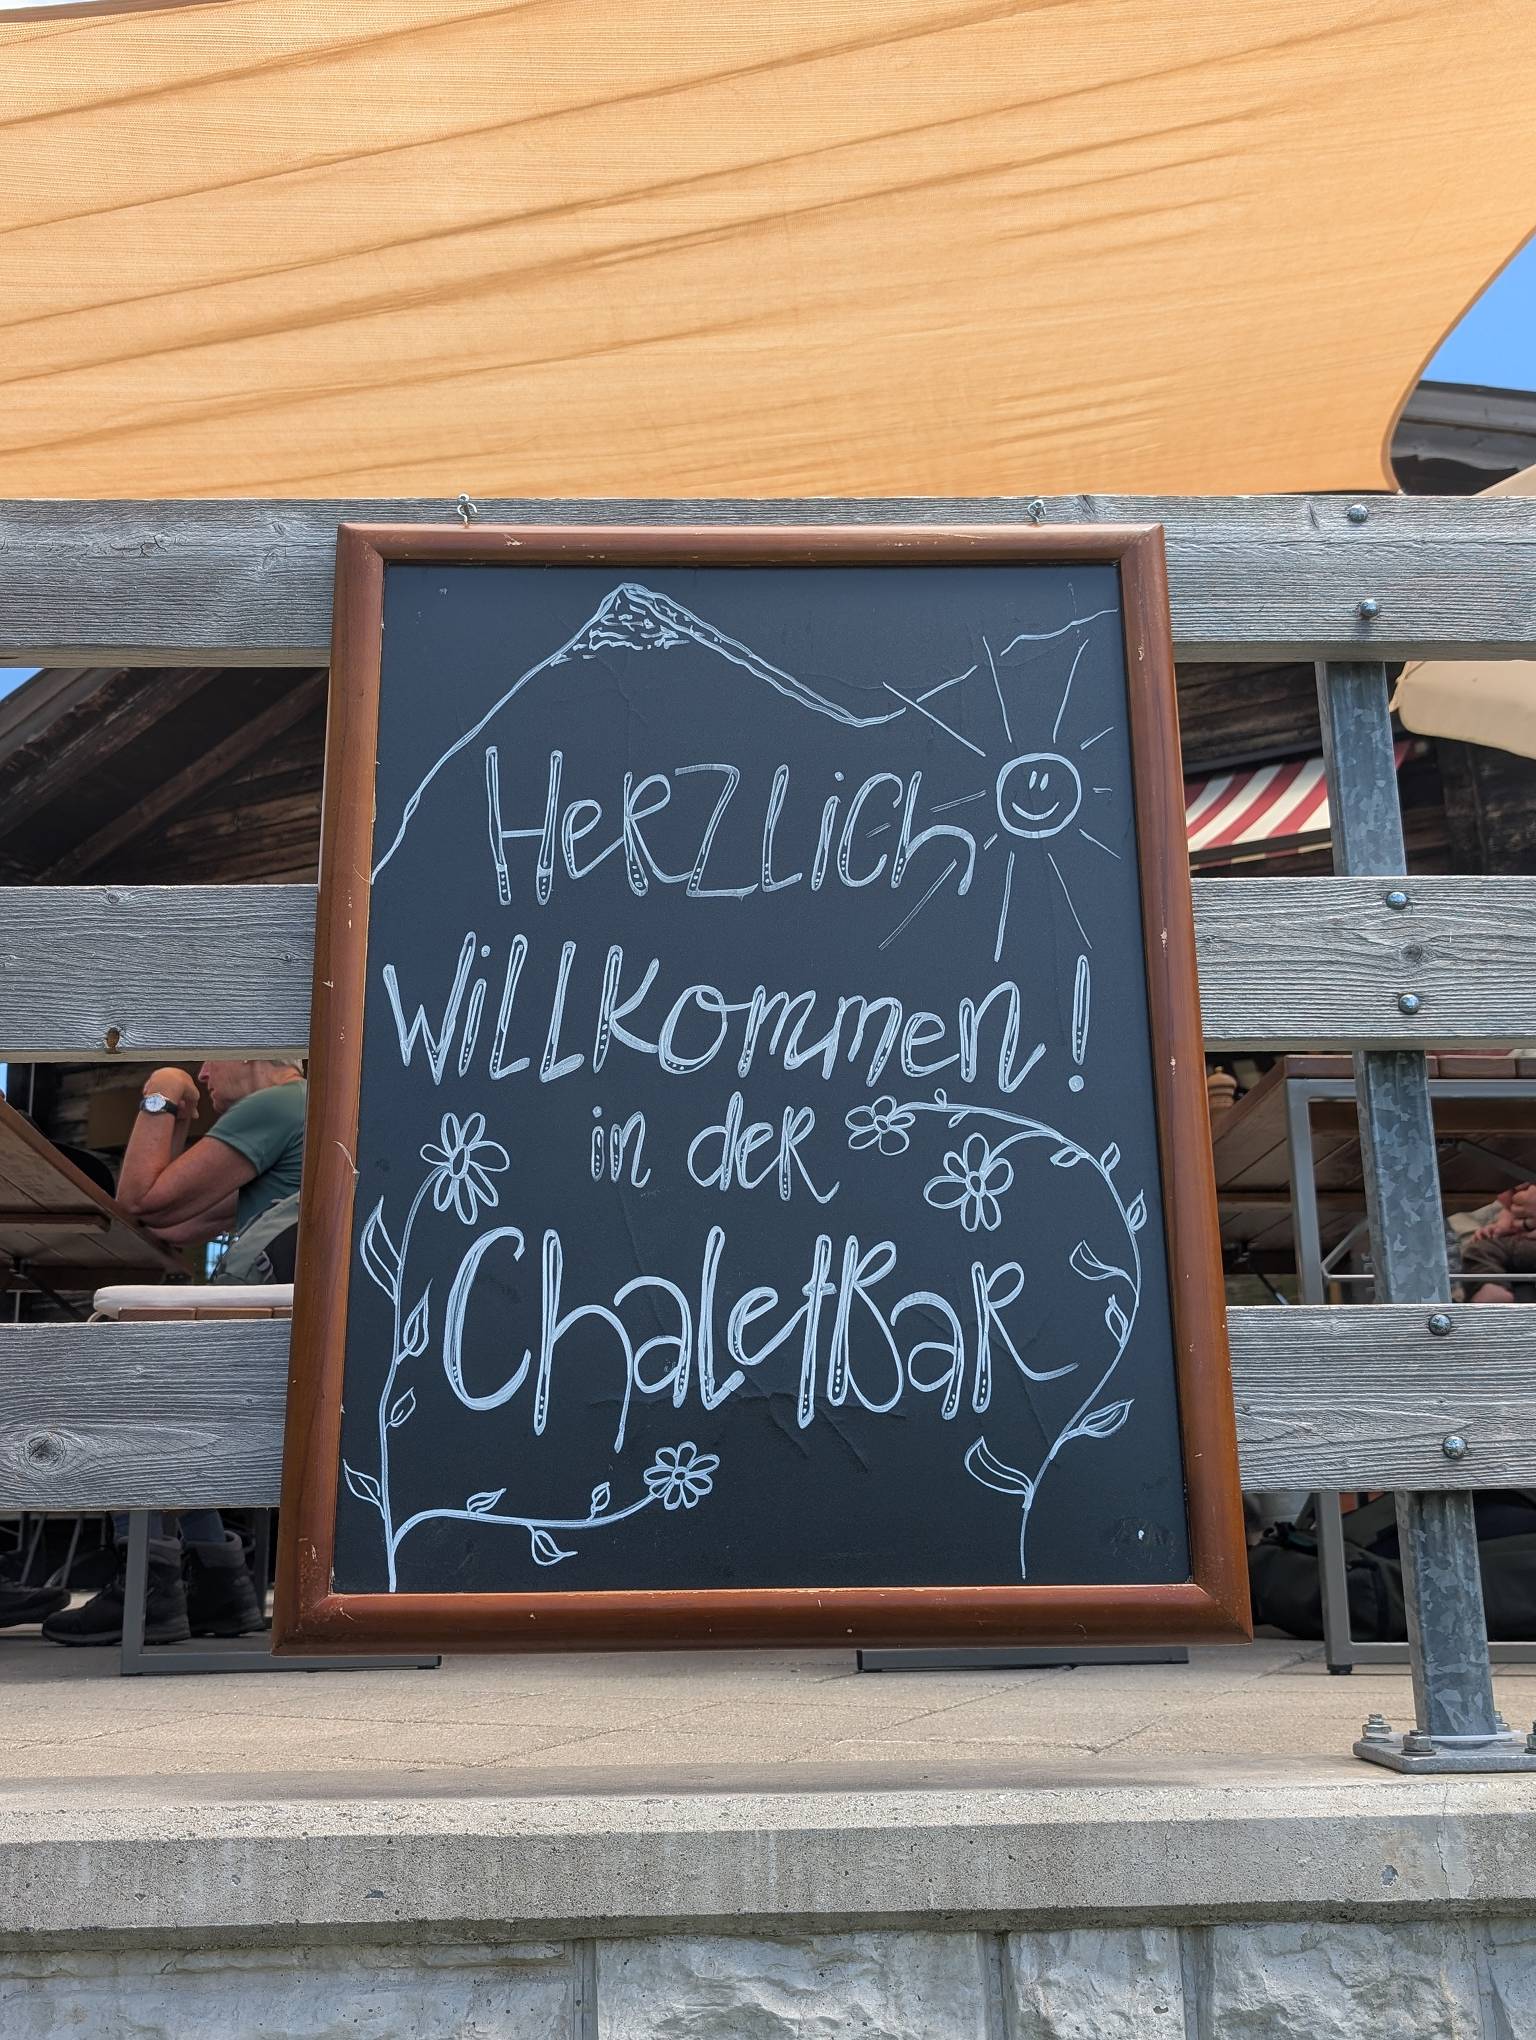 Herzlich
Willkommen!
in der
ChaletBar